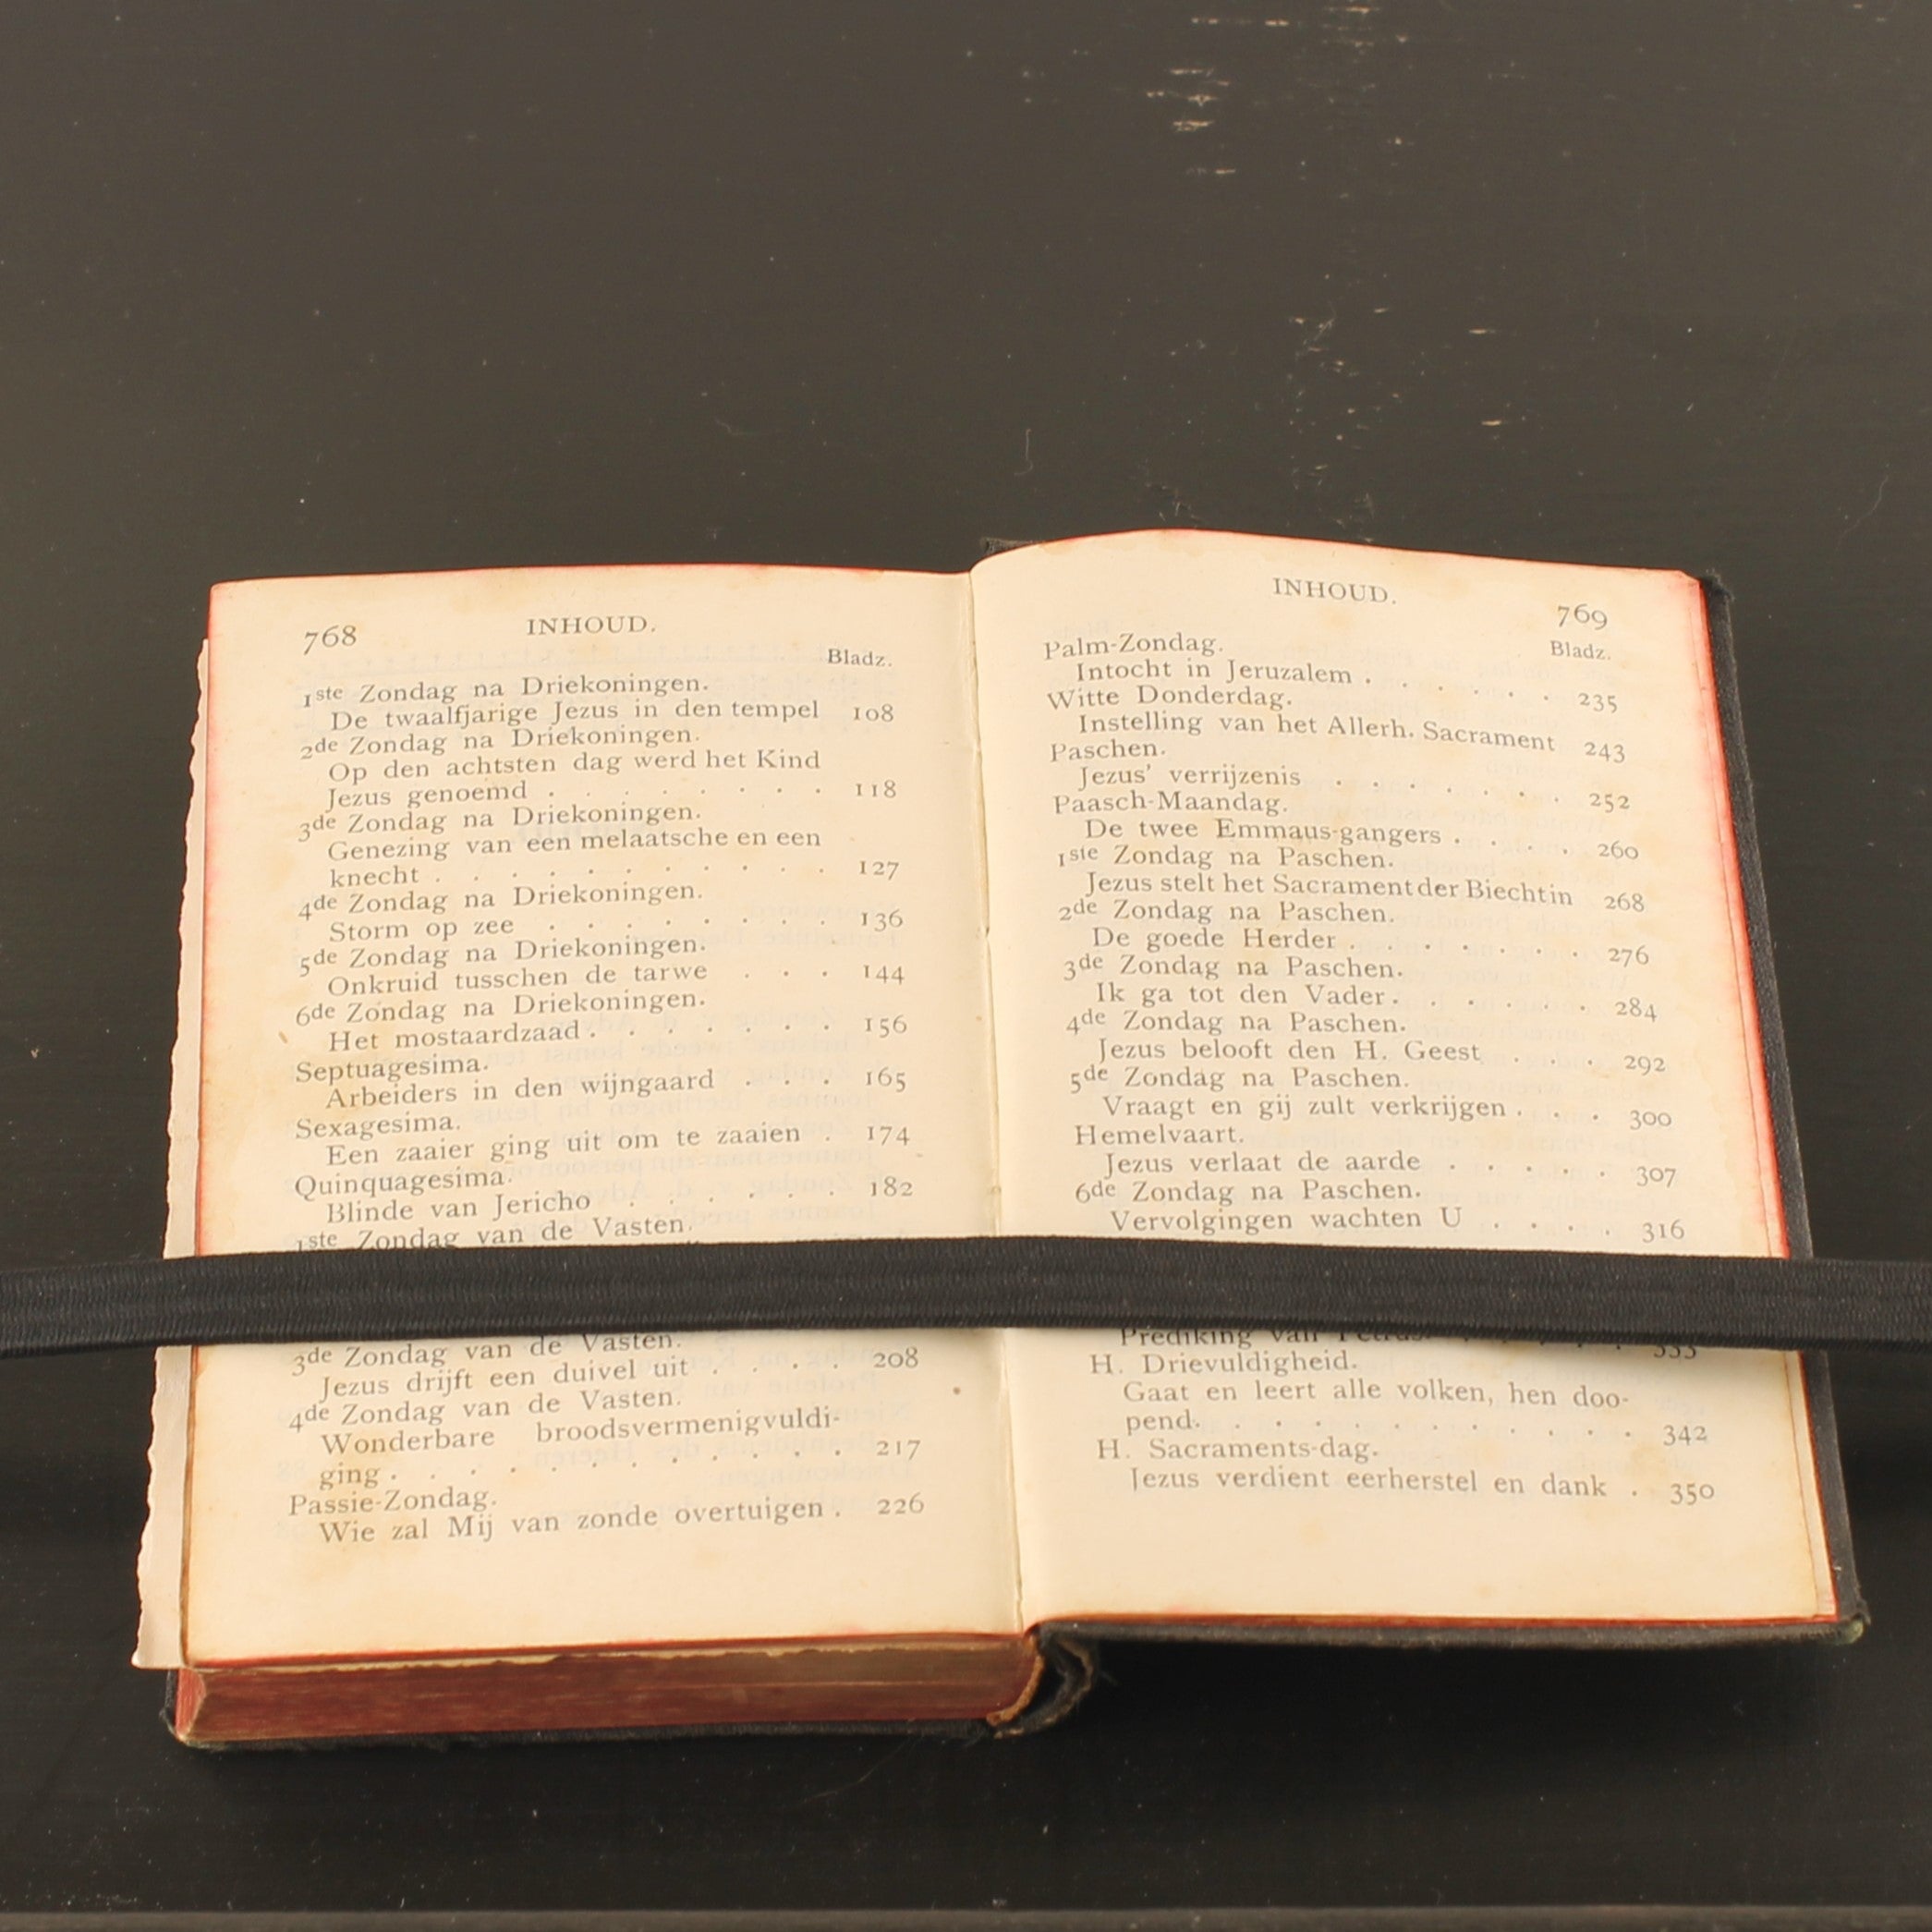 768 INHOUD.
Bladz.
1ste Zondag na Driekoningen.
De twaalfjarige Jezus in den tempel 108
2de Zondag na Driekoningen.
Op den achtsten dag werd het Kind
Jezus genoemd . . . . . . . . 118
3de Zondag na Driekoningen.
Genezing van een melaatsche en een
knecht . . . . . . . . . . . 127
4de Zondag na Driekoningen.
Storm op zee . . . . . . . . 136
5de Zondag na Driekoningen.
Onkruid tusschen de tarwe . . . 144
6de Zondag na Driekoningen.
Het mostaardzaad . . . . . . . 156
Septuagesima.
Arbeiders in den wijngaard . . . 165
Sexagesima.
Een zaaier ging uit om te zaaien . 174
Quinquagesima.
Blinde van Jericho . . . . . . 182
1ste Zondag van de Vasten.
3de Zondag van de Vasten.
Jezus drijft een duivel uit . . . . 208
4de Zondag van de Vasten.
Wonderbare broodsvermenigvuldi-
ging . . . . . . . . . . . . 217
Passie-Zondag.
Wie zal Mij van zonde overtuigen . 226
INHOUD. 769
Bladz.
Palm-Zondag.
Intocht in Jeruzalem . . . . . . 235
Witte Donderdag.
Instelling van het Allerh. Sacrament 243
Paschen.
Jezus' verrijzenis . . . . . . . 252
Paasch-Maandag.
De twee Emmaus-gangers . . . . 260
1ste Zondag na Paschen.
Jezus stelt het Sacrament der Biecht in 268
2de Zondag na Paschen.
De goede Herder . . . . . . . 276
3de Zondag na Paschen.
Ik ga tot den Vader . . . . . . 284
4de Zondag na Paschen.
Jezus belooft den H. Geest . . . 292
5de Zondag na Paschen.
Vraagt en gij zult verkrijgen . . . 300
Hemelvaart.
Jezus verlaat de aarde . . . . . 307
6de Zondag na Paschen.
Vervolgingen wachten U . . . . 316
Prediking van Petrus . . . . . . 333
H. Drievuldigheid.
Gaat en leert alle volken, hen doo-
pend. . . . . . . . . . . . 342
H. Sacraments-dag.
Jezus verdient eerherstel en dank . 350